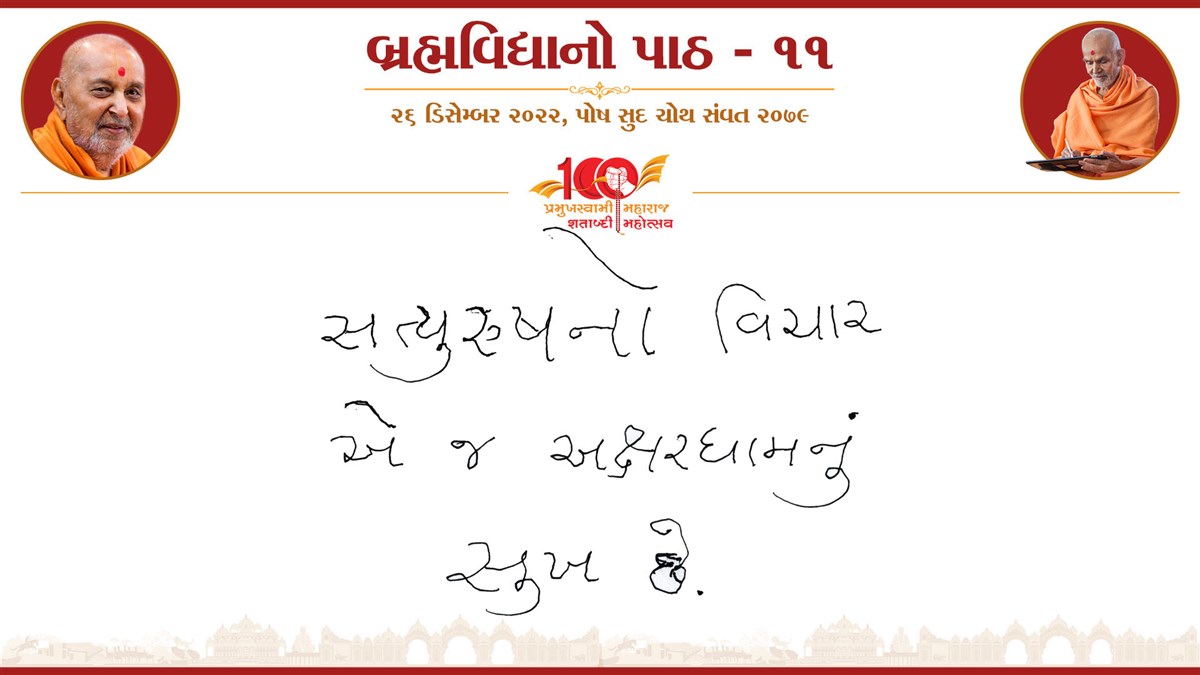 બ્રહ્મવિદ્યાનો પાઠ - ૧૧
૨૬ ડિસેમ્બર ૨૦૨૨, પોષ સુદ ચોથ સંવત ૨૦૭૯
100
પ્રમુખસ્વામી મહારાજ
શતાબ્દી મહોત્સવ
સત્પુરુષનો વિચાર
એ જ અક્ષરધામનું
સુખ છે.